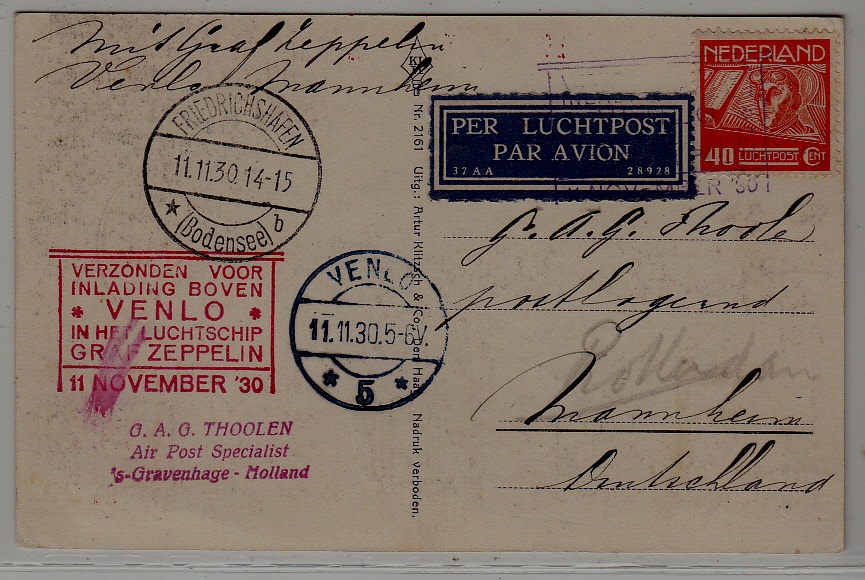 Mit Graf Zeppelin
Venlo Mannheim
FRIEDRICHSHAFEN
11.11.30.14-15
(Bodensee) b
VERZONDEN VOOR
INLADING BOVEN
* VENLO *
IN HET LUCHTSCHIP
GRAF ZEPPELIN
11 NOVEMBER '30
G. A. G. THOOLEN
Air Post Specialist
's-Gravenhage - Holland
VENLO
11.11.30.5-6V.
* 5 *
Nr. 2161 Uitg.: Artur Klitzsch & Co., Den Haag Nadruk verboden.
PER LUCHTPOST
PAR AVION
37AA 28928
NEDERLAND
40 LUCHTPOST CENT
11 NOVEMBER '30
G. A. G. Thoolen
postlagernd
Rotterdam
Mannheim
Deutschland